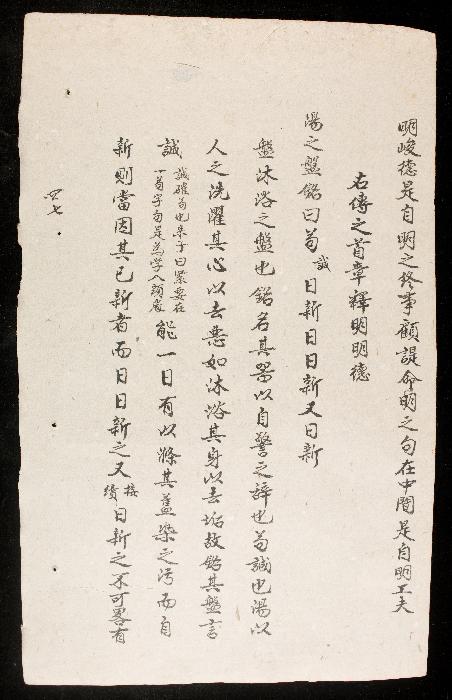 明峻德是自明之終事顧諟命明之句在中間是自明工夫
右傳之首章釋明明德
湯之盤銘曰苟誠日新日日新又日新
盤沐浴之盤也銘名其器以自警之辭也苟誠也湯以
人之洗濯其心以去惡如沐浴其身以去垢故銘其盤言
誠誠確苟也朱子曰緊要在一苟字句是為學入頭處能一日有以滌其舊染之污而自
新則當因其已新者而日日新之又接續日新之不可畧有
四七